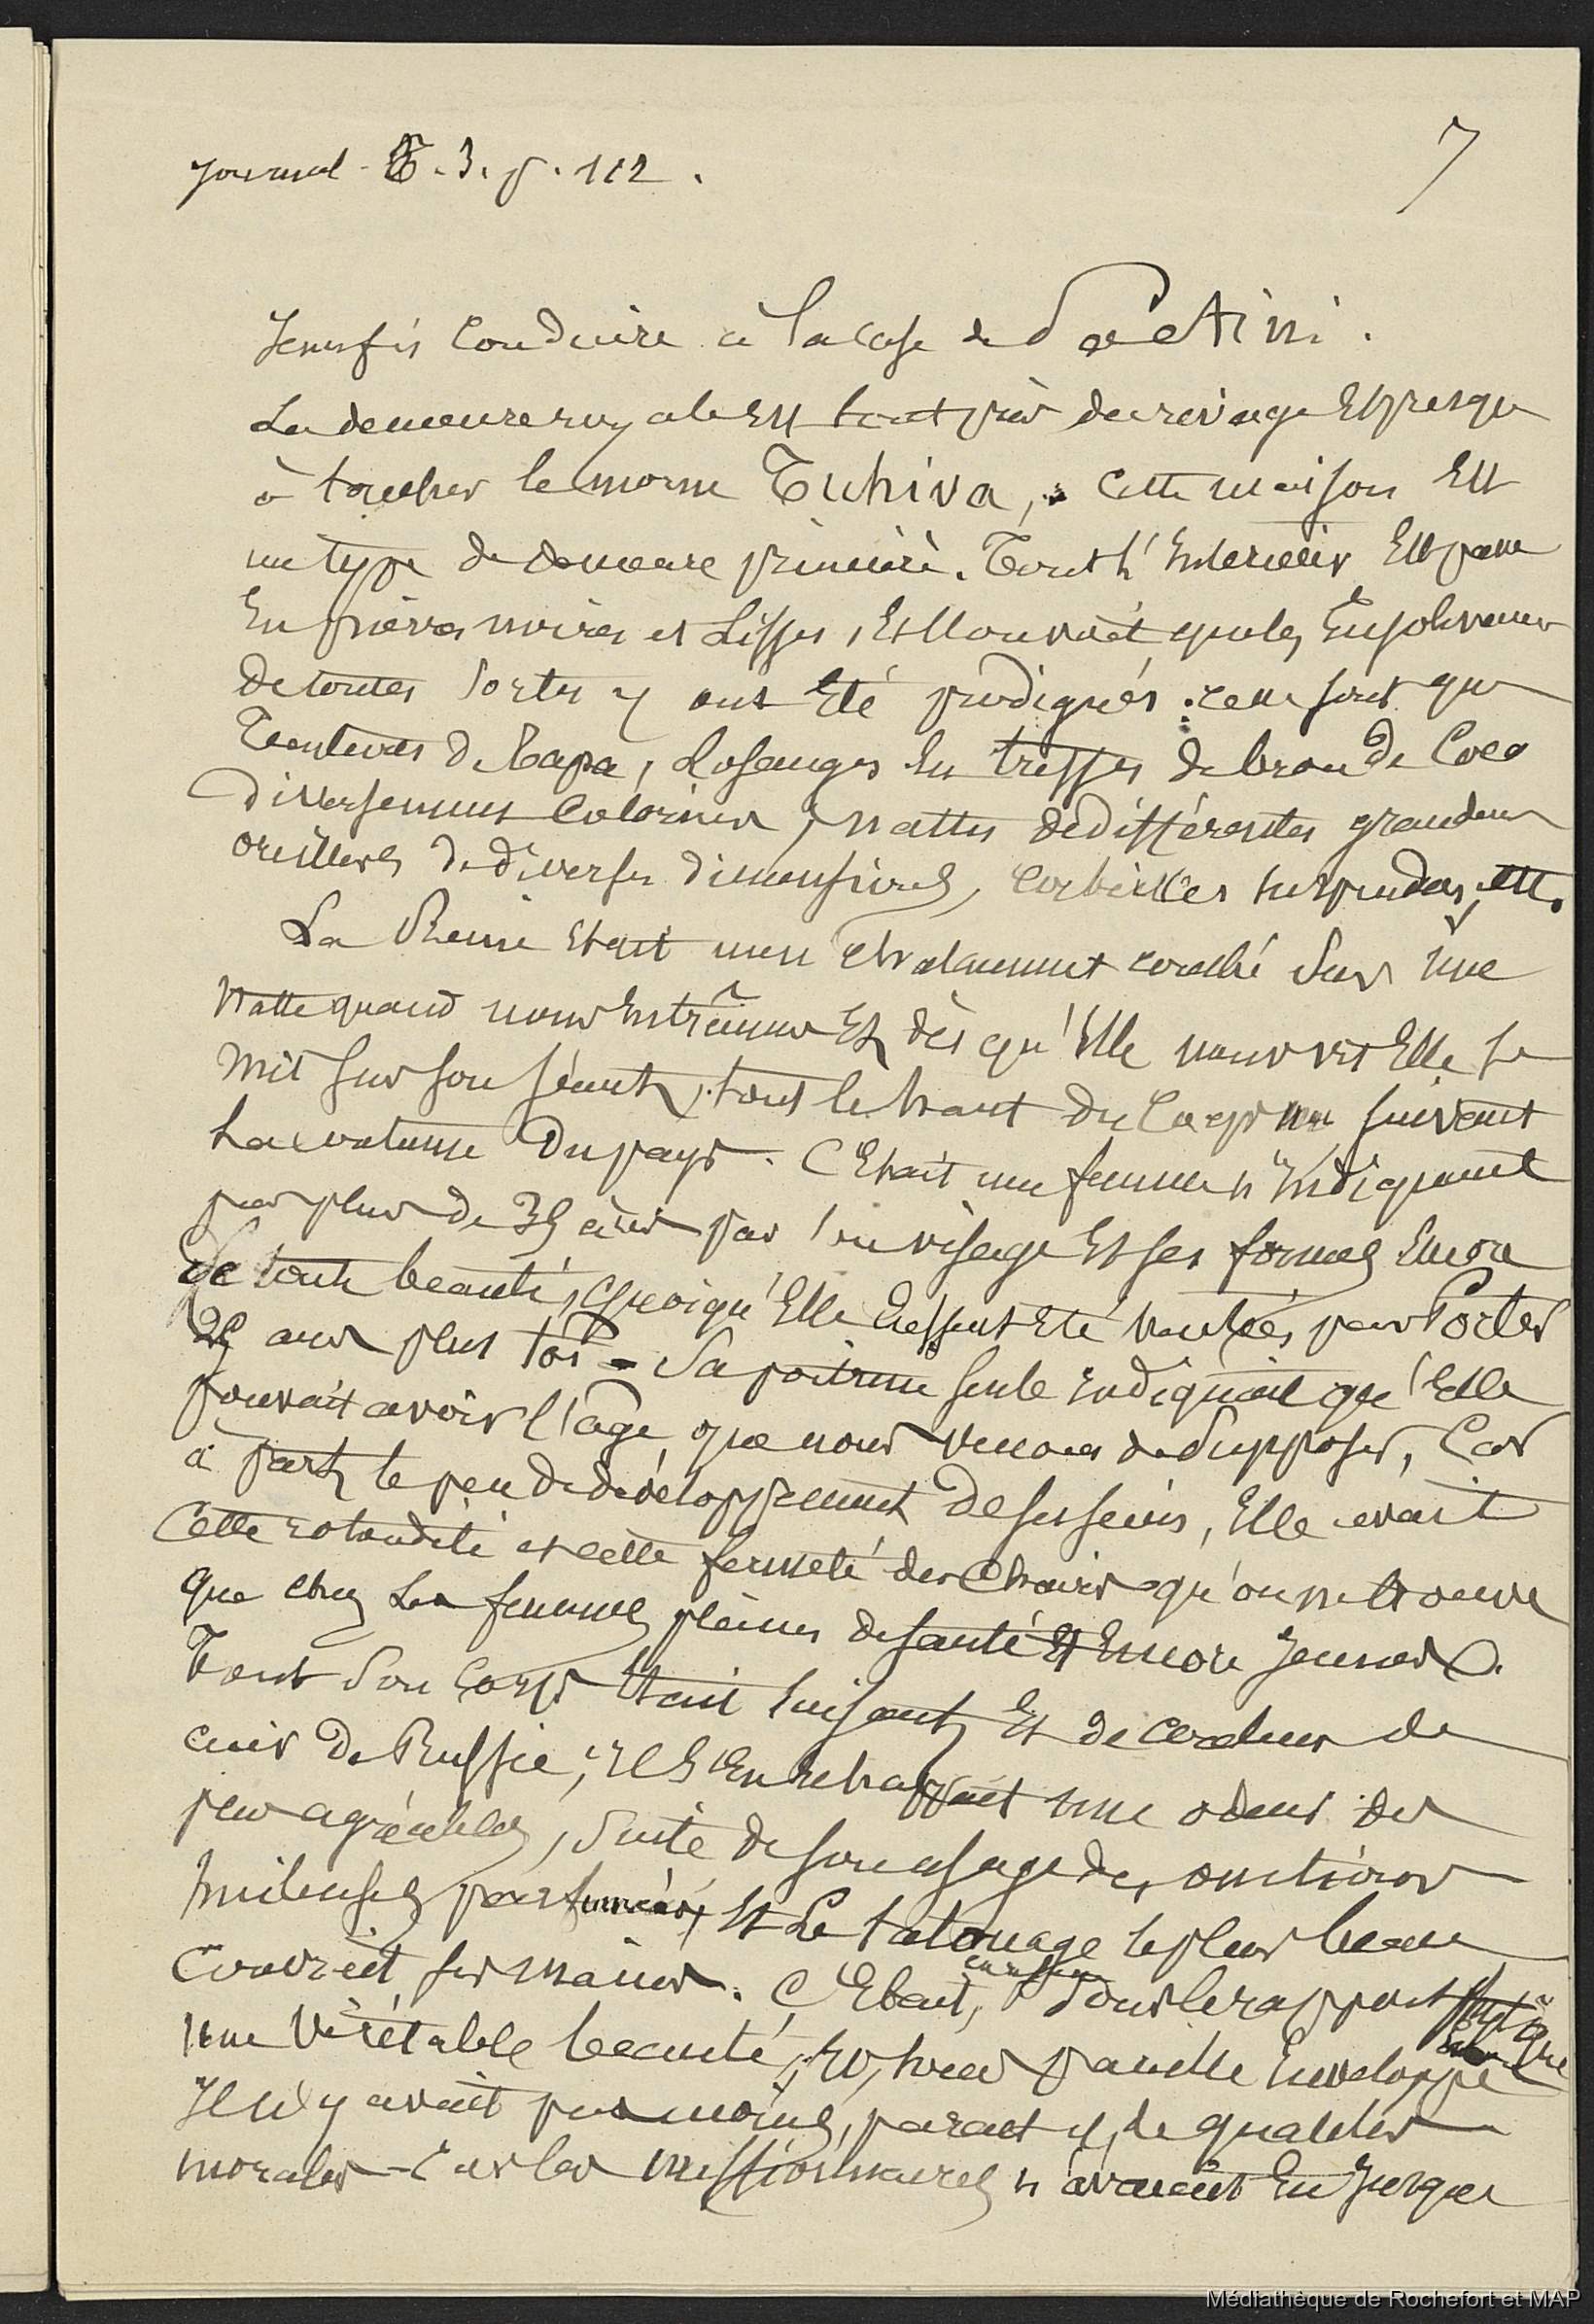 Journal - T. 3. p. 112.
7
Je me fis conduire à la case de Paetini.
La demeure royale est tout près du rivage et presque
à toucher le morne Tuhiva, cette maison est
un type de demeure princière. Tout l'intérieur est pavé
en pierres noires et lisses, et l'on voit que les enjolivemens
de toutes sortes y ont été prodigués : ce ne sont que
tentures de tapa, losanges en tresses de brou de coco
diversement coloriées, nattes de différentes grandeurs
oreillers de diverses dimensions, corbeilles suspendues, etc.
La Reine était nonchalamment couchée sur une
natte quand nous entrâmes et dès qu'elle nous vit elle se
mit sur son séant, tout le haut du corps nu suivant
la coutume du pays. C'était une femme n'indiquant
pas plus de 35 ans par son visage et ses formes encore
de toute beauté, quoiqu'elle eussent été vantées par Porter
25 ans plus tôt - Sa poitrine seule indiquait qu'elle
pouvait avoir l'âge que nous venons de supposer, car
à part le peu de développement de ses seins, elle avait
cette rotondité et cette fermeté des chairs qu'on ne trouve
que chez les femmes pleines de santé et encore jeunes.
Tout son corps était luisant et de couleur de
cuir de Russie, il s'en échappait une odeur des
plus agréables, suite de son usage des onctions
huileuses parfumées, et le tatouage le plus beau
couvrait ses mains. C'était, sous le rapport physique
une véritable beauté, sous pareille enveloppe
Il n'y avait pas moins, parait-il, de qualités
morales - car les missionnaires n'avaient eu jusque
Médiathèque de Rochefort et MAP